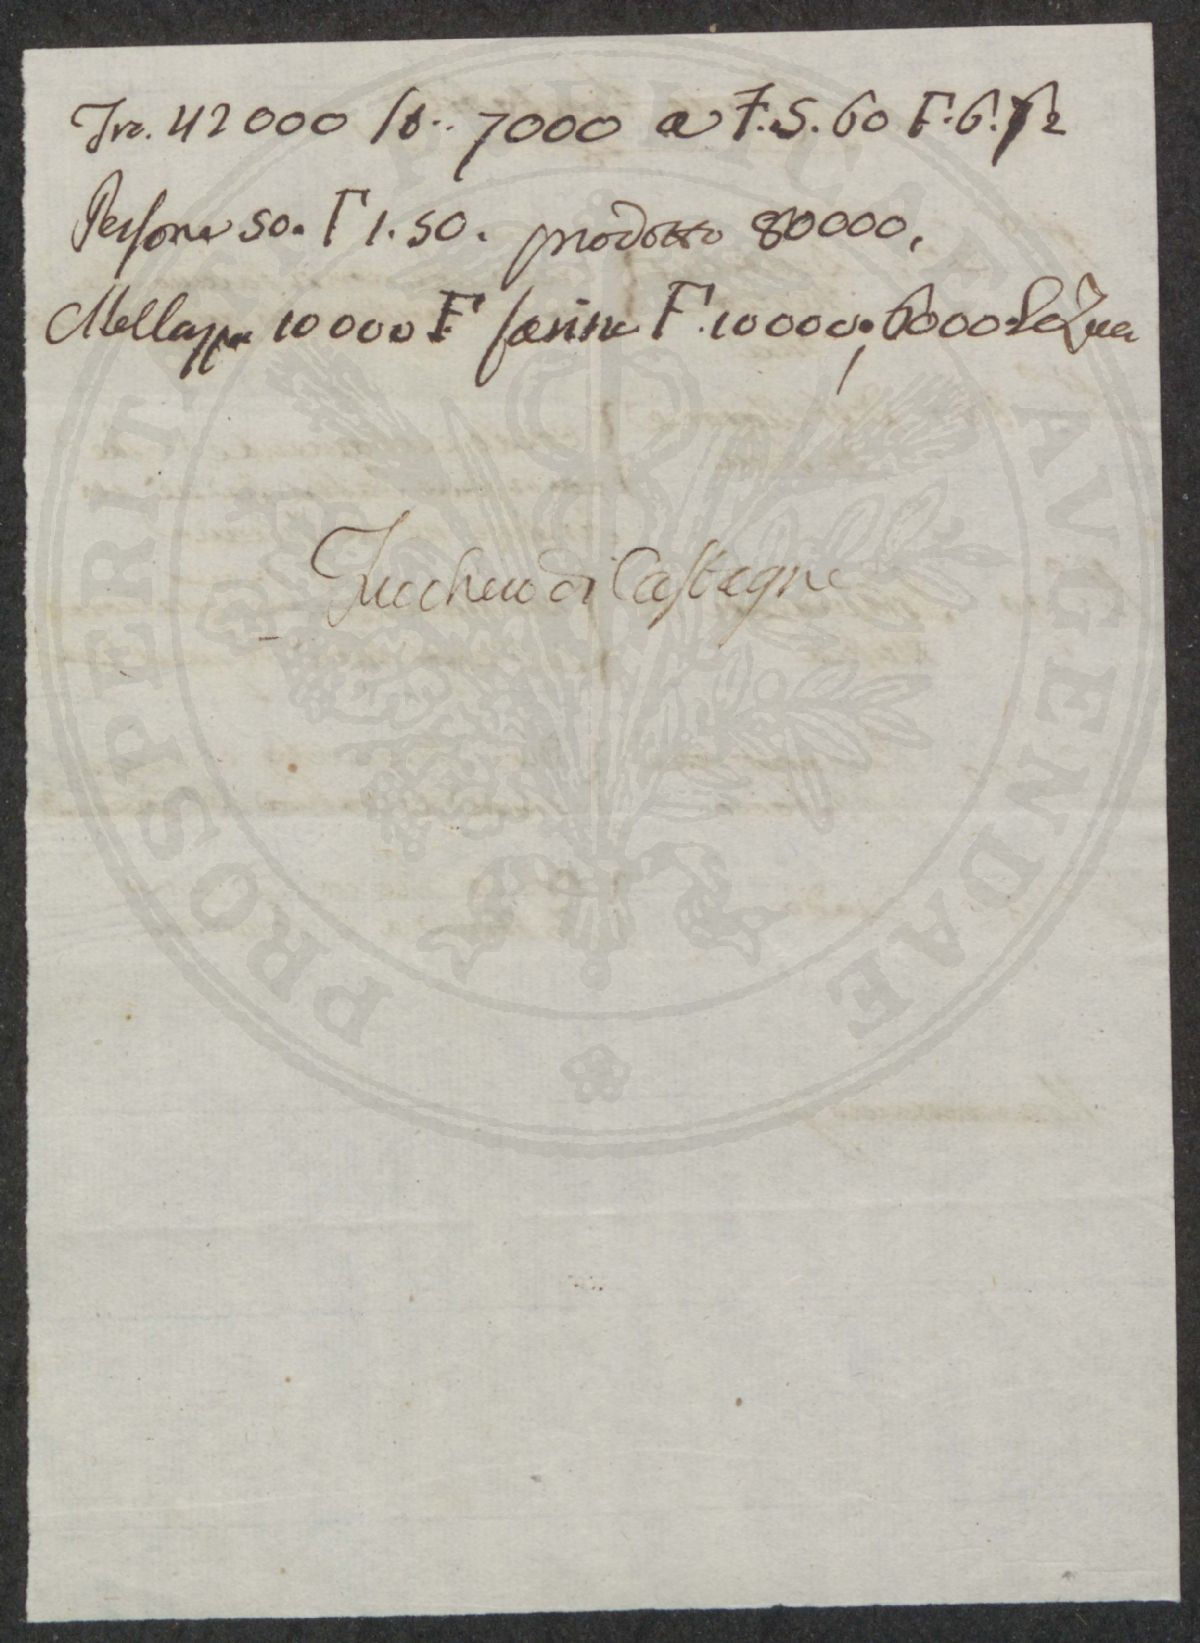 Fr. 42000 lb. 7000 a F. 5. 60 F. 6. 72
Persone 50. F 1. 50. prodotto 80000,
Mellassa 10000 F farina F. 10000, 6000
Zucchero di Castagne
PROSPERITATI PUBLICAE AVGENDAE